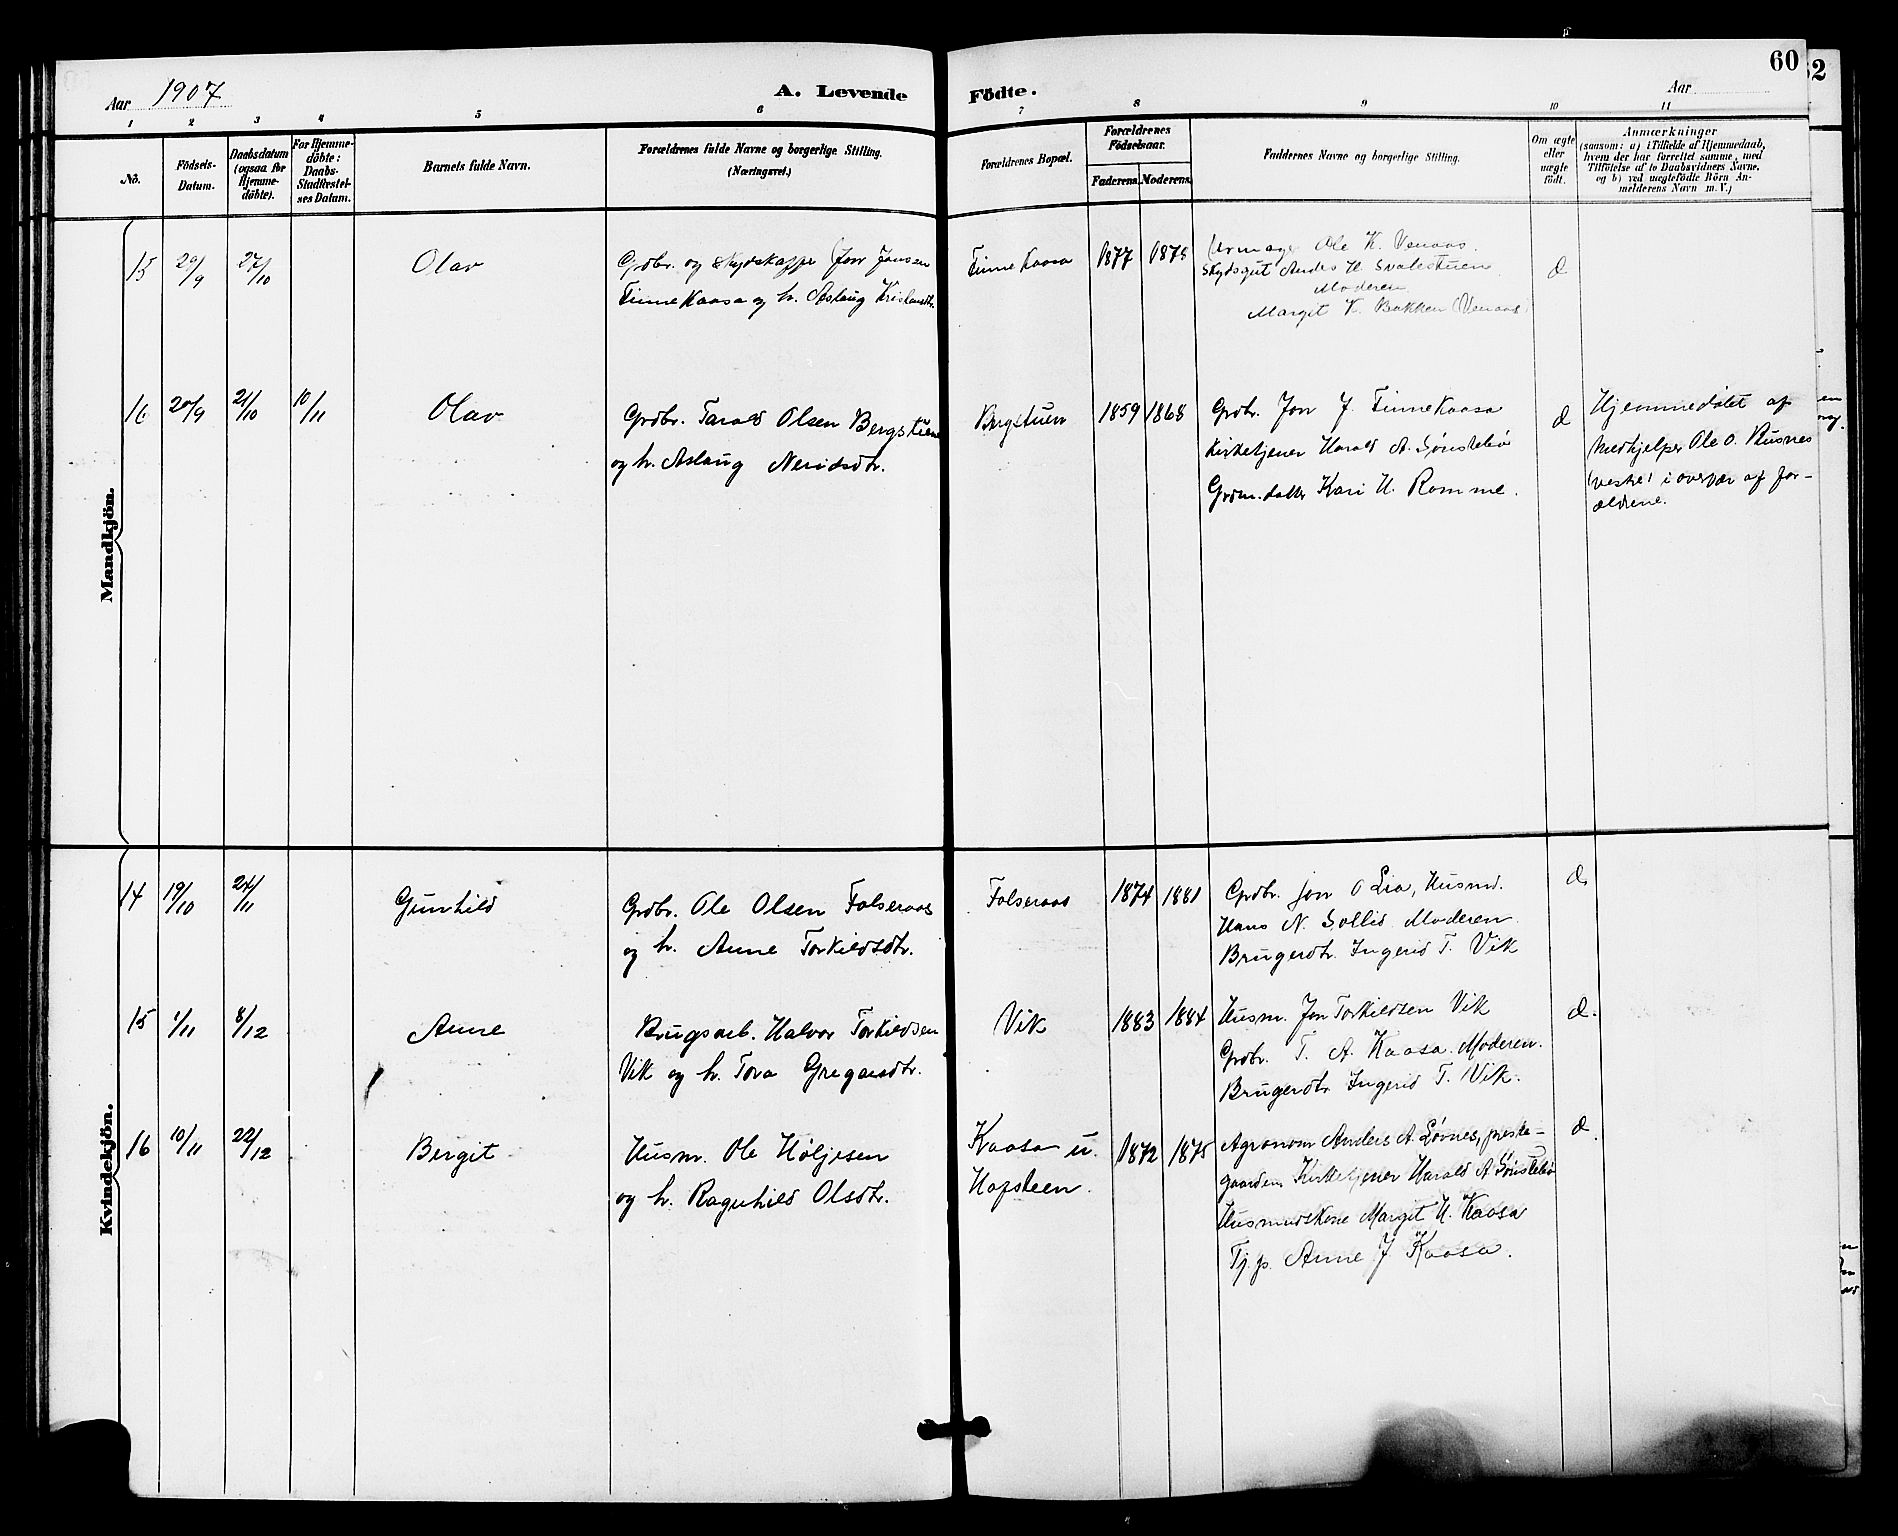 Aar 1907 A. Levende Födte. Aar 60
1 2 3 4 5 6 7 8 9 10 11
No.
Födsels-
Datum.
Daabsdatum
(ogsaa for
Hjemme-
döbte).
For Hjemme-
döbte:
Daabs-
Stadfæstel-
ses Datum.
Barnets fulde Navn.
Forældrenes fulde Navne og borgerlige Stilling.
(Næringsvei.)
Forældrenes Bopæl.
Forældrenes
Födselsaar.
Faderens. Moderens.
Faddernes Navne og borgerlige Stilling.
Om ægte
eller
uægte
födt.
Anmærkninger
(saasom: a) i Tilfælde af Hjemmedaab,
hvem der har forrettet samme, med
Tilföielse af to Daabsvidners Navne,
og b) ved uægtefödte Börn An-
melderens Navn m. V.)
Mandkjön.
15 20/9 27/10
Olav
Grdbr. og skydskaffer Jon Jonsen
Finnekaasa og h.  Aslaug Kristensdtr.
Finnekaasa
1877 1875
Urmager Ole K. Venaas.
Skydsgut Andes H. Svalestuen.
Moderen
Margit K. Bakken (Venaas)
16 20/9 21/10 10/11
Olav
Grdbr. Tarald Olsen Bergstuen
og h. Aslaug Neridsdtr.
Bergstuen
1859 1868
Grdbr. Jon J. Finnekaasa
Kirketjener Harald A. Sønstebø
Grdm.datter Kari H. Romme.
Hjemmedøbt af
Medhjelper Ole O. Rusnes
(vestre) i overvær af for-
ældrene.
Kvindekjön.
14 19/10 24/11
Gunhild
Grdbr. Ole Olsen Folseraas
og h. Anne Torkildsdtr.
Folseraas
1874 1881
Grdbr. Jon O Lia, Husmd.
Hans N. Sollid. Moderen.
Brugerdtr. Ingerid T. Vik
15 1/11 8/12
Anne
Brugsarb. Halvor Torkildsen
Vik og h. Tova Gregarsdtr.
Vik
1883 1884
Husm. Jon Torkildsen Vik
Grdbr. T. A. Kaasa. Moderen.
Brugerdtr. Ingerid T. Vik.
16 10/11 22/12
Bergit
Husm. Ole Høljesen
og h. Ragnhild Olsdtr.
Kaasa u.
Hofsteen.
1872 1875
Agronom Anders A. Løvnes, preste-
gaarden, Kirketjener Harald A Sønstebø
Husmandskone Margit H. Kaasa
Tj.p. Anne J Kaasa.